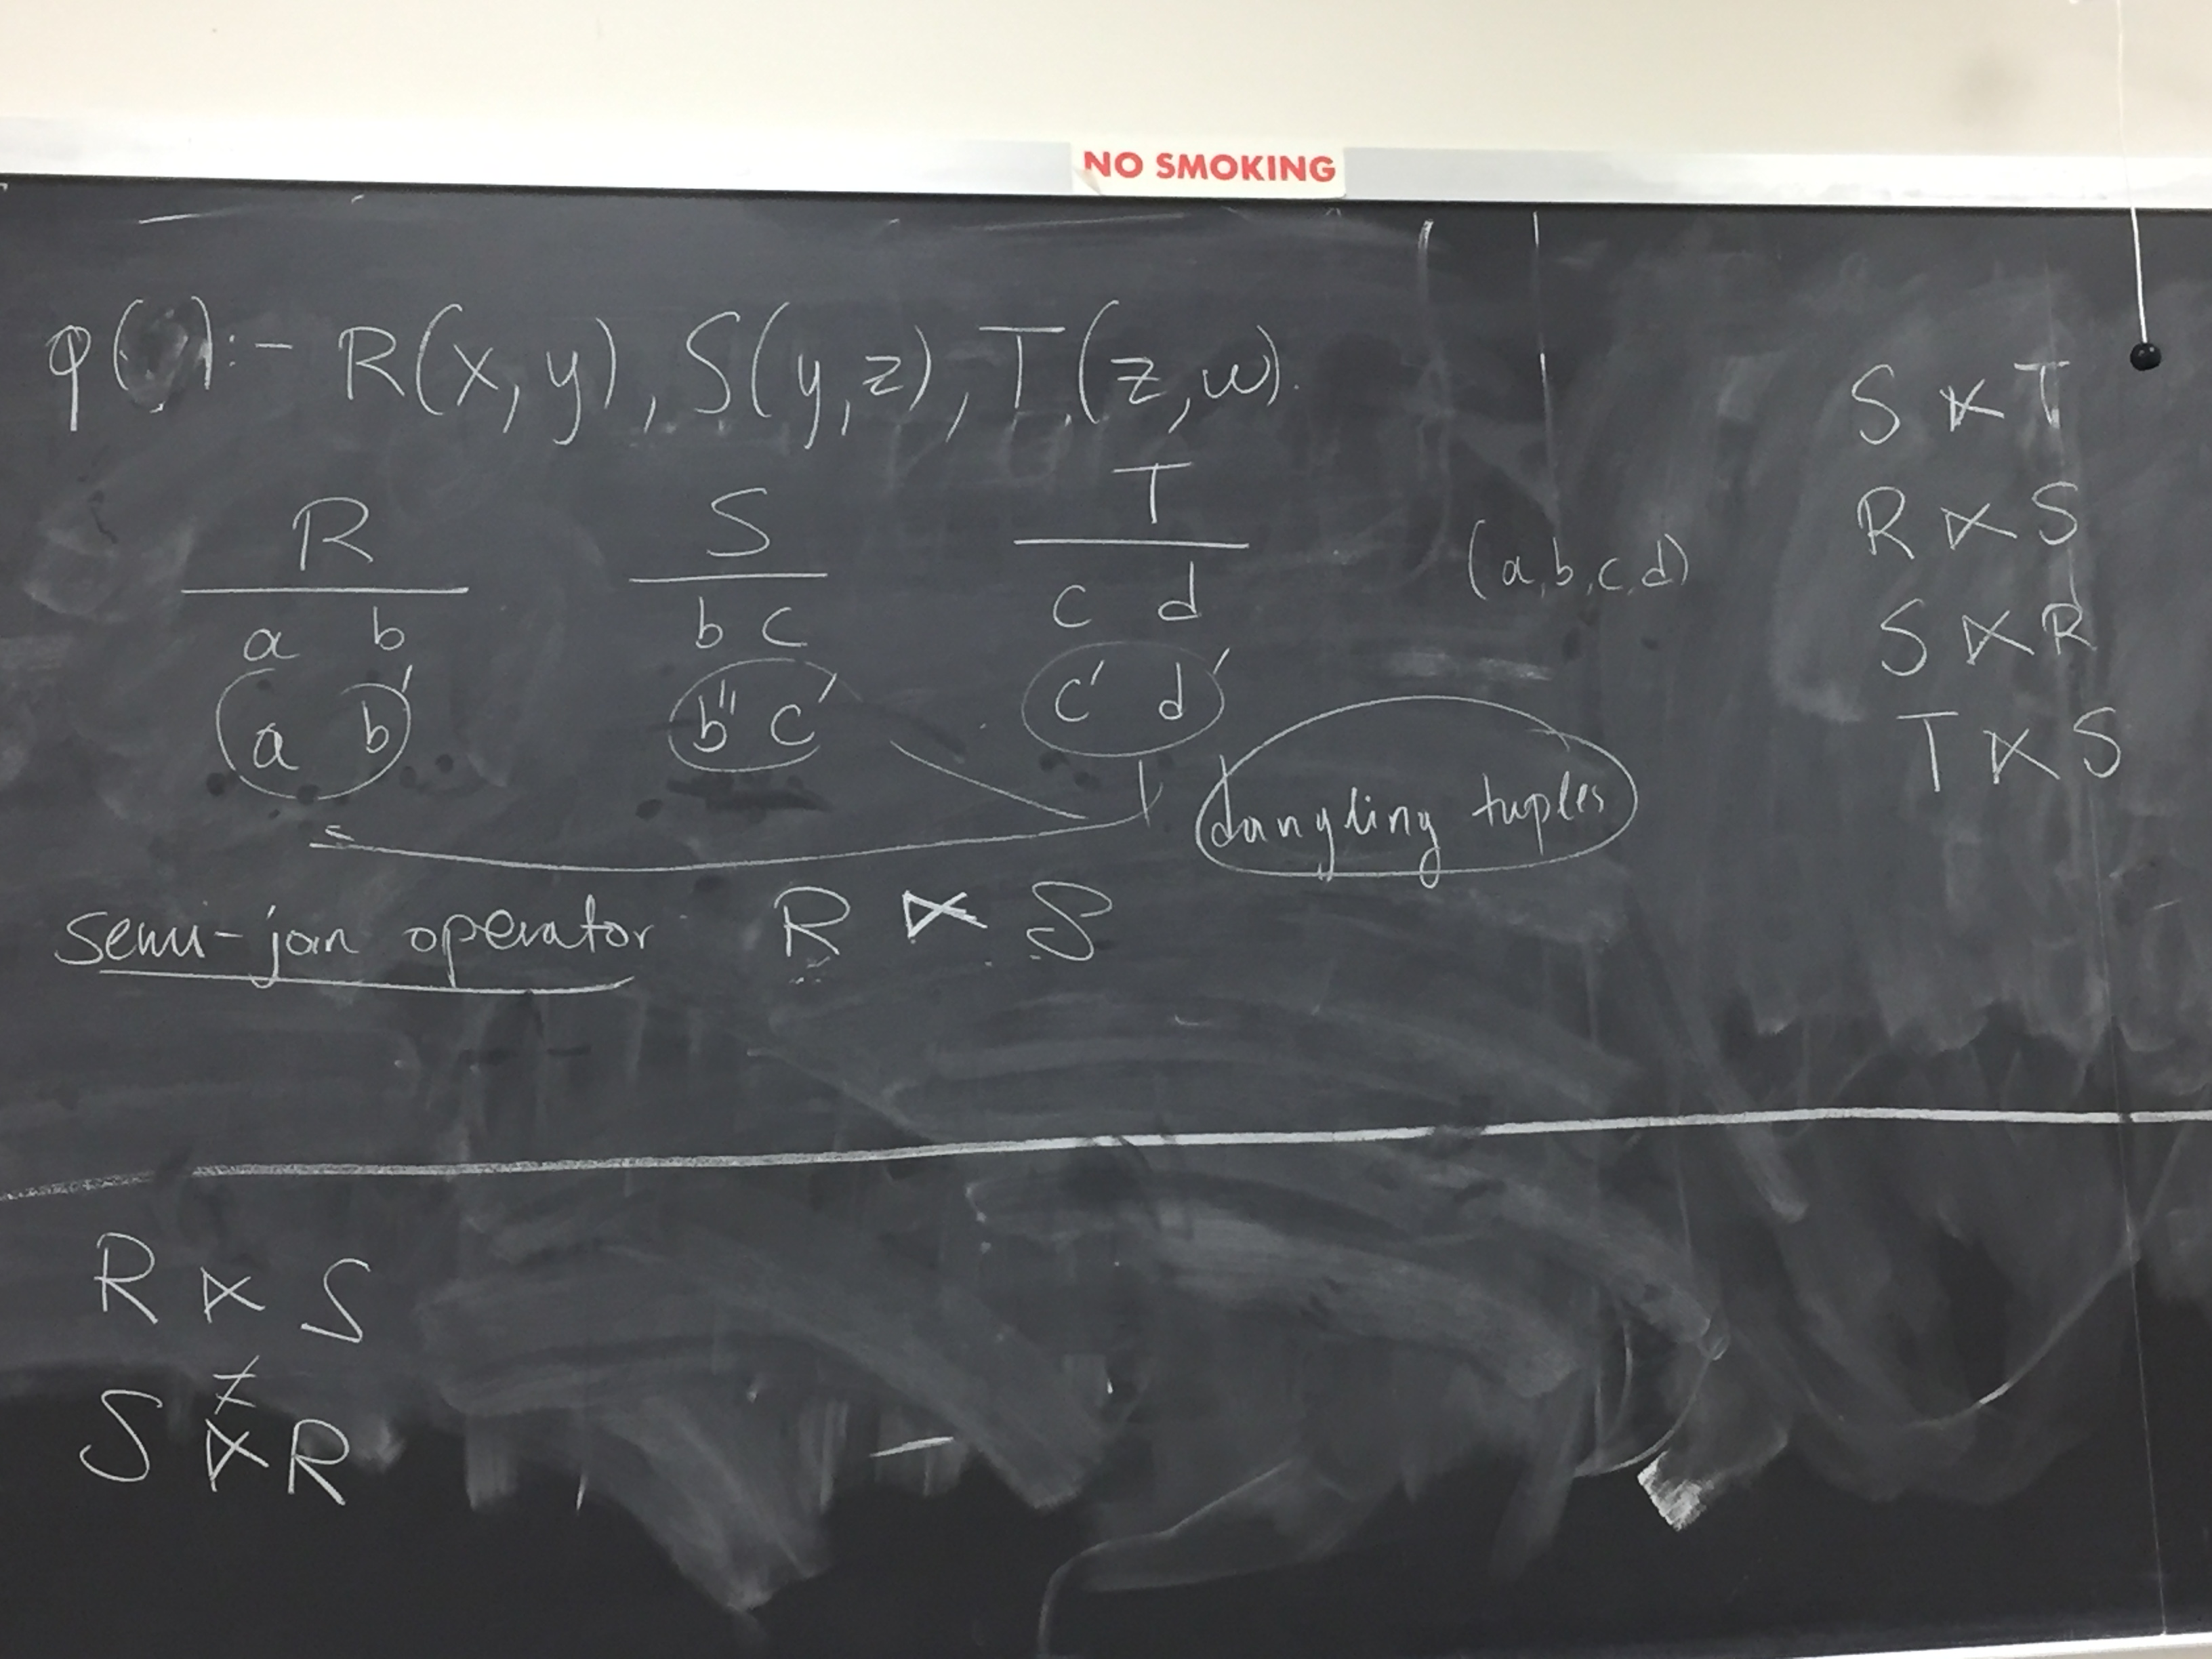 NO SMOKING
q( ) :- R(x,y), S(y,z), T(z,w).
R S T
a b b c c d (a,b,c,d)
a b' b'' c' c' d'
dangling tuples
semi-join operator R ⋉ S
S ⋉ T
R ⋉ S
S ⋉ R
T ⋉ S
R ⋉ S
≠
S ⋉ R